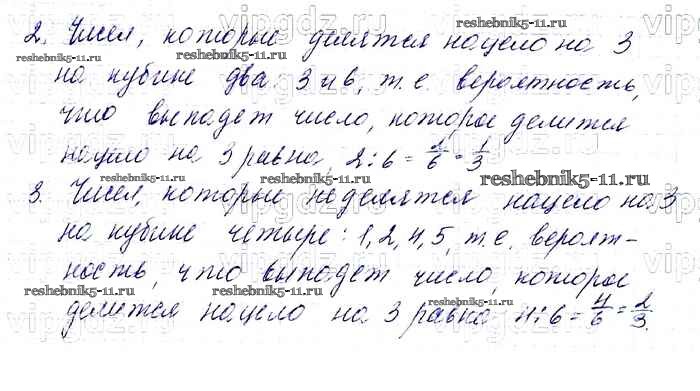 2. Чисел, которые делятся нацело на 3
на кубике два 3 и 6, т.е. вероятность,
что выпадет число, которое делится
нацело на 3 равна 2:6 = 2/6 = 1/3
3. Чисел, которые не делятся нацело на 3
на кубике четыре: 1,2,4,5, т.е. вероят-
ность, что выпадет число, которое
делится нацело на 3 равна 4:6 = 4/6 = 2/3.
reshebnik5-11.ru
reshebnik5-11.ru
reshebnik5-11.ru
reshebnik5-11.ru
reshebnik5-11.ru
reshebnik5-11.ru
reshebnik5-11.ru
vipgdz.ru